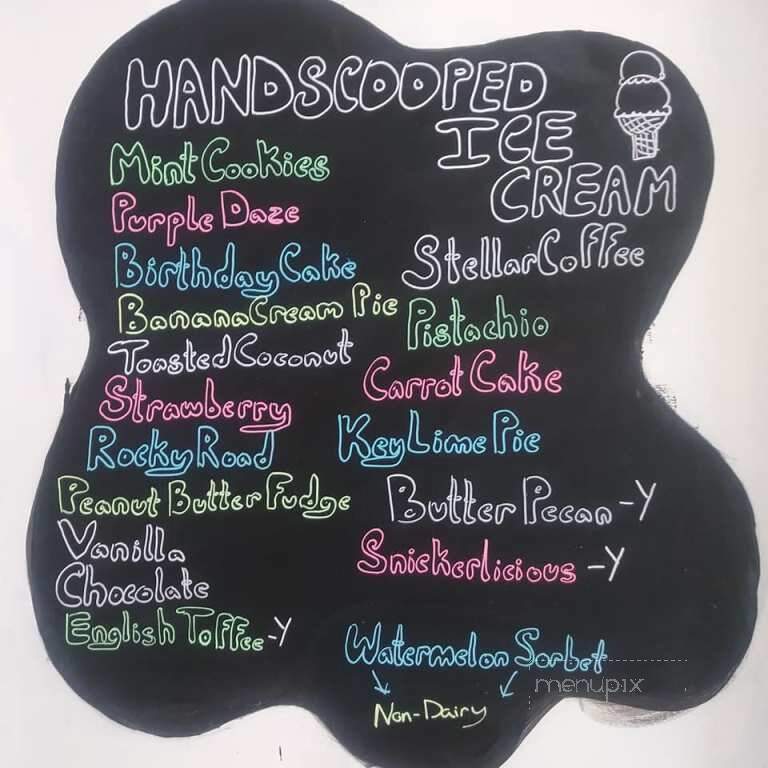 HANDSCOOPED
ICE
CREAM
Mint Cookies
Purple Daze
Birthday Cake
Banana Cream Pie
Toasted Coconut
Strawberry
Rocky Road
Peanut Butter Fudge
Vanilla
Chocolate
English Toffee -Y
Stellar Coffee
Pistachio
Carrot Cake
Key Lime Pie
Butter Pecan -Y
Snickerlicious -Y
Watermelon Sorbet
Non-Dairy
menupix